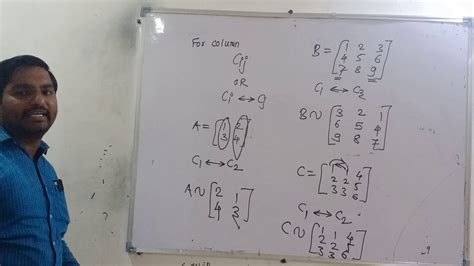 For column
Cij
OR
Ci ↔ Cj
A = [1 2
3 4]
C1 ↔ C2
A ~ [2 1
4 3]
B = [1 2 3
4 5 6
7 8 9]
C1 ↔ C2
B ~ [3 2 1
6 5 4
9 8 7]
C = [1 1 4
2 2 5
3 3 6]
C1 ↔ C2
C ~ [1 1 4
2 2 5
3 3 6]